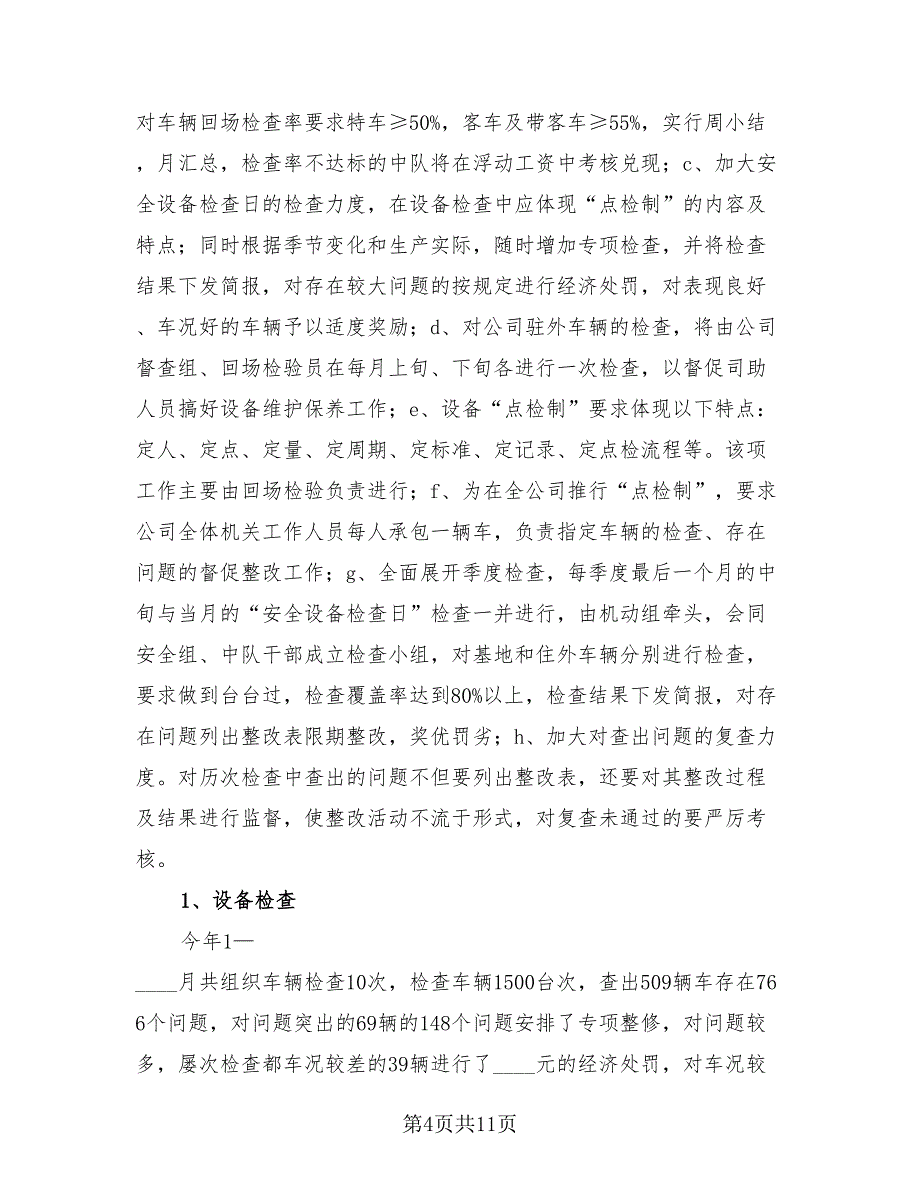 对车辆回场检查率要求特车≥50%，客车及带客车≥55%，实行周小结
，月汇总，检查率不达标的中队将在浮动工资中考核兑现；c、加大安
全设备检查日的检查力度，在设备检查中应体现“点检制”的内容及
特点；同时根据季节变化和生产实际，随时增加专项检查，并将检查
结果下发简报，对存在较大问题的按规定进行经济处罚，对表现良好
、车况好的车辆予以适度奖励；d、对公司驻外车辆的检查，将由公司
督查组、回场检验员在每月上旬、下旬各进行一次检查，以督促司助
人员搞好设备维护保养工作；e、设备“点检制”要求体现以下特点：
定人、定点、定量、定周期、定标准、定记录、定点检流程等。该项
工作主要由回场检验负责进行；f、为在全公司推行“点检制”，要求
公司全体机关工作人员每人承包一辆车，负责指定车辆的检查、存在
问题的督促整改工作；g、全面展开季度检查，每季度最后一个月的中
旬与当月的“安全设备检查日”检查一并进行，由机动组牵头，会同
安全组、中队干部成立检查小组，对基地和住外车辆分别进行检查，
要求做到台台过，检查覆盖率达到80%以上，检查结果下发简报，对存
在问题列出整改表限期整改，奖优罚劣；h、加大对查出问题的复查力
度。对历次检查中查出的问题不但要列出整改表，还要对其整改过程
及结果进行监督，使整改活动不流于形式，对复查未通过的要严厉考
核。
1、设备检查
今年1—
____月共组织车辆检查10次，检查车辆1500台次，查出509辆车存在76
6个问题，对问题突出的69辆的148个问题安排了专项整修，对问题较
多，屡次检查都车况较差的39辆进行了____元的经济处罚，对车况较
第4页共11页